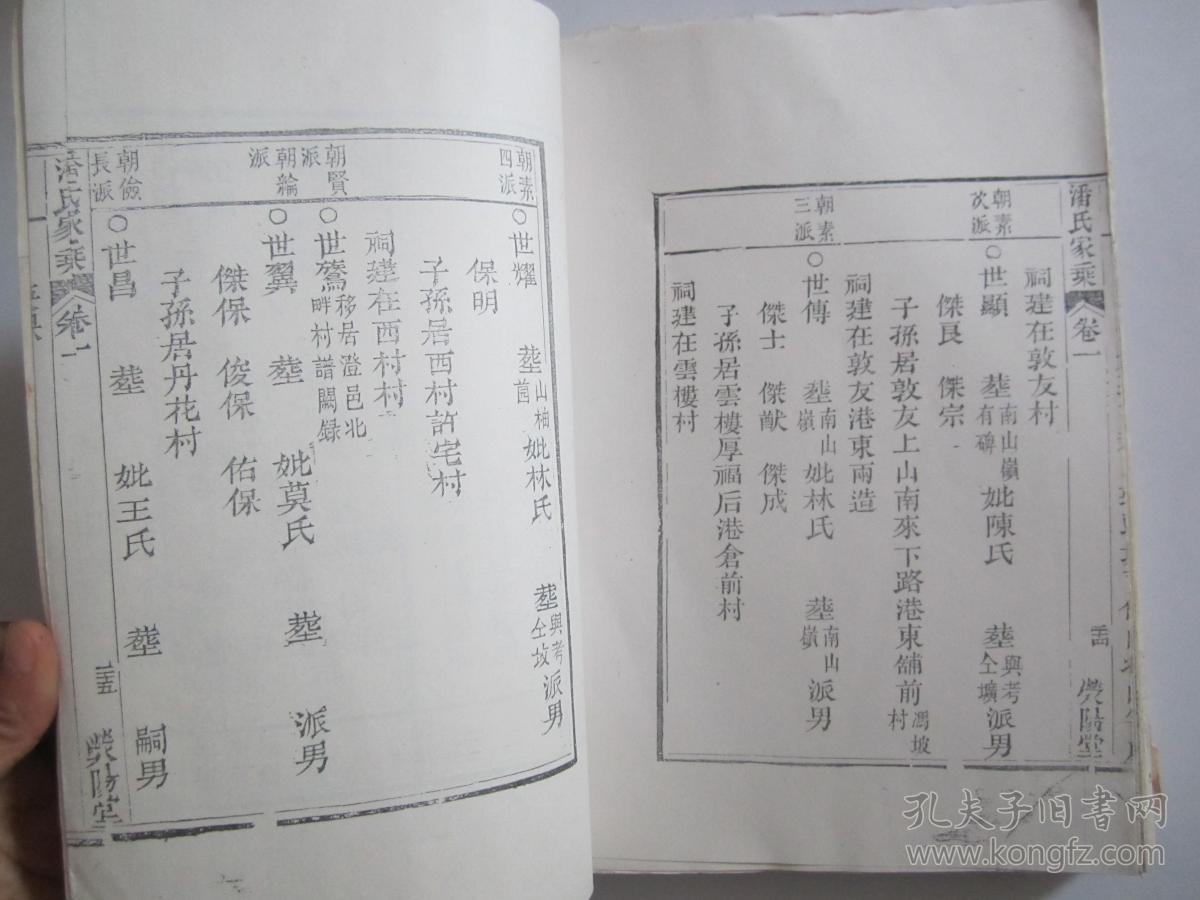 潘氏家乘
卷一
熒陽堂
祠建在敦友村
朝素次派
○世顯 塟南山嶺有碑 妣陳氏 塟與考仝壙 派男
傑良 傑宗
子孫居敦友上山南來下路港東舖前馮坡村
祠建在敦友港東兩造
朝素三派
○世傳 塟南山嶺 妣林氏 塟南山嶺 派男
傑士 傑猷 傑成
子孫居雲樓厚福后港倉前村
祠建在雲樓村
朝素四派
○世耀 塟山柚菌 妣林氏 塟與考仝坟 派男
保明
子孫居西村許宅村
祠建在西村村
朝賢派
○世鶱 移居澄邑北畔村譜闕録
朝綸派
○世翼 塟 妣莫氏 塟 派男
傑保 俊保 佑保
子孫居丹花村
朝儉長派
○世昌 塟 妣王氏 塟 嗣男
潘氏家乘
卷一
熒陽堂
孔夫子旧书网
www.kongfz.com